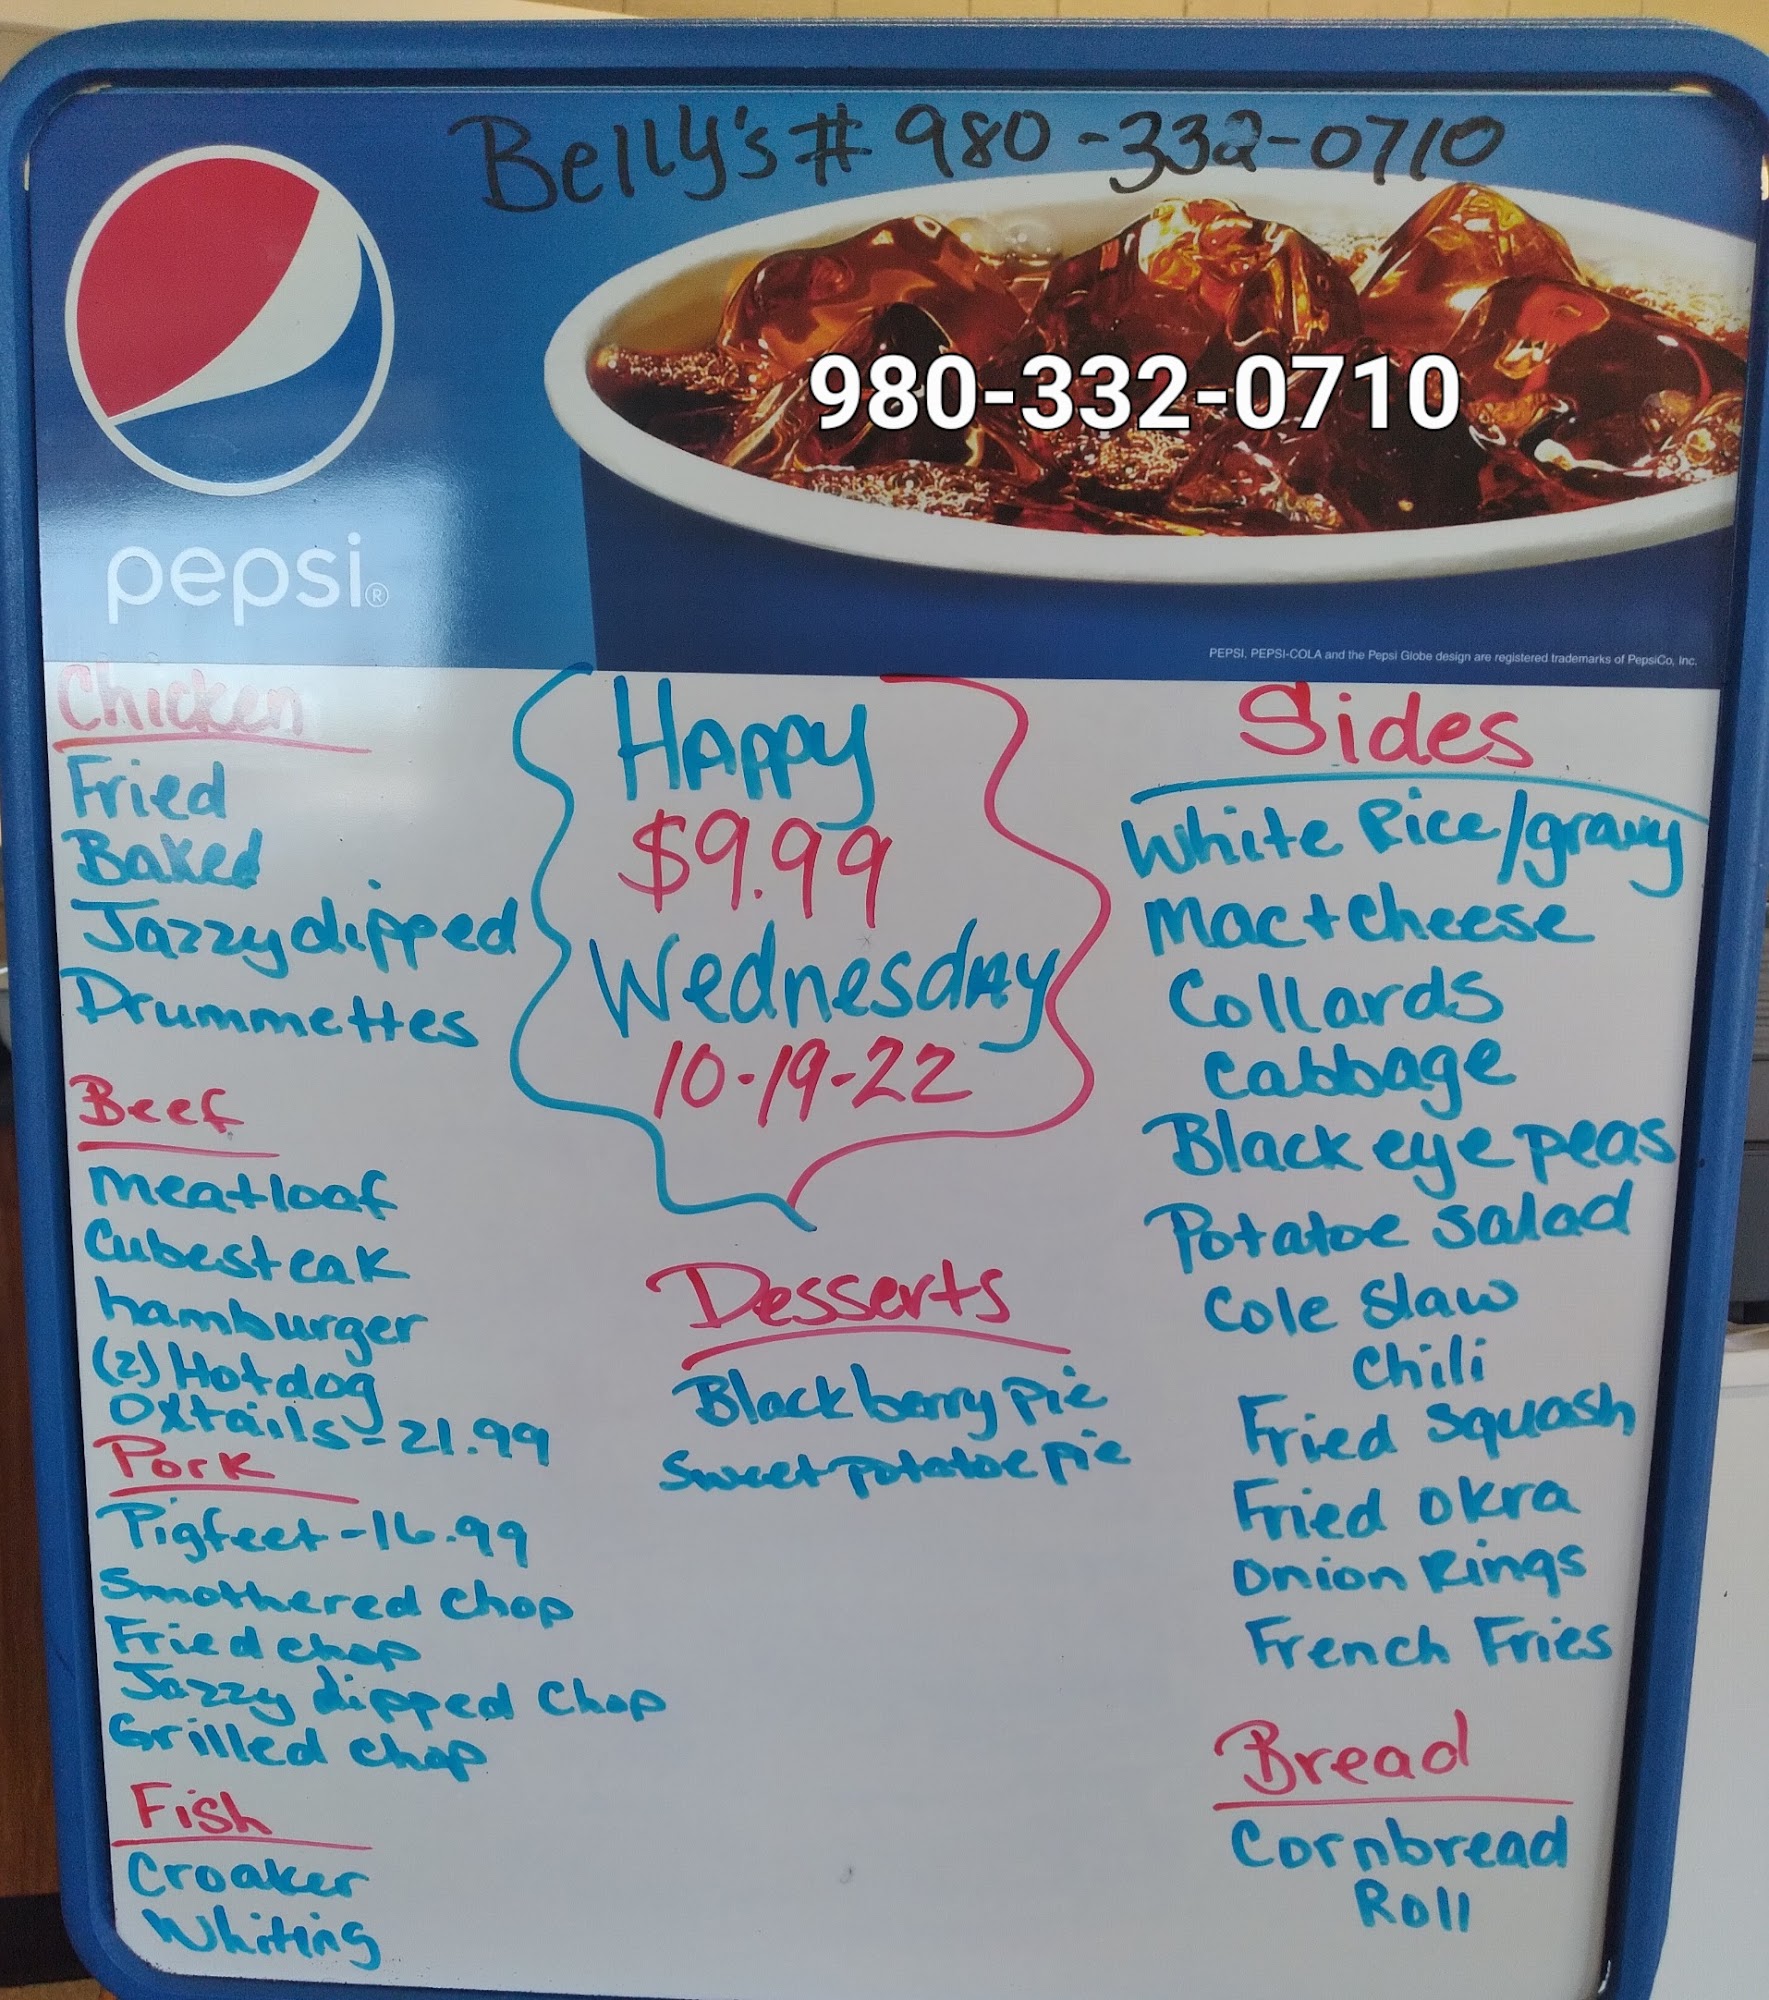 Belly's # 980-332-0710
980-332-0710
pepsi®
PEPSI, PEPSI-COLA and the Pepsi Globe design are registered trademarks of PepsiCo, Inc.
Chicken
Fried
Baked
Jazzy dipped
Drummettes
Beef
Meatloaf
Cubesteak
hamburger
(2) Hotdog
Oxtails - 21.99
Pork
Pigfeet - 16.99
Smothered chop
Fried chop
Jazzy dipped Chop
Grilled chop
Fish
Croaker
Whiting
Happy
$9.99
Wednesday
10-19-22
Desserts
Blackberry pie
Sweet potatoe pie
Sides
White Rice/gravy
Mac+Cheese
Collards
Cabbage
Black eye peas
Potatoe salad
Cole Slaw
Chili
Fried squash
Fried okra
Onion Rings
French Fries
Bread
Cornbread
Roll